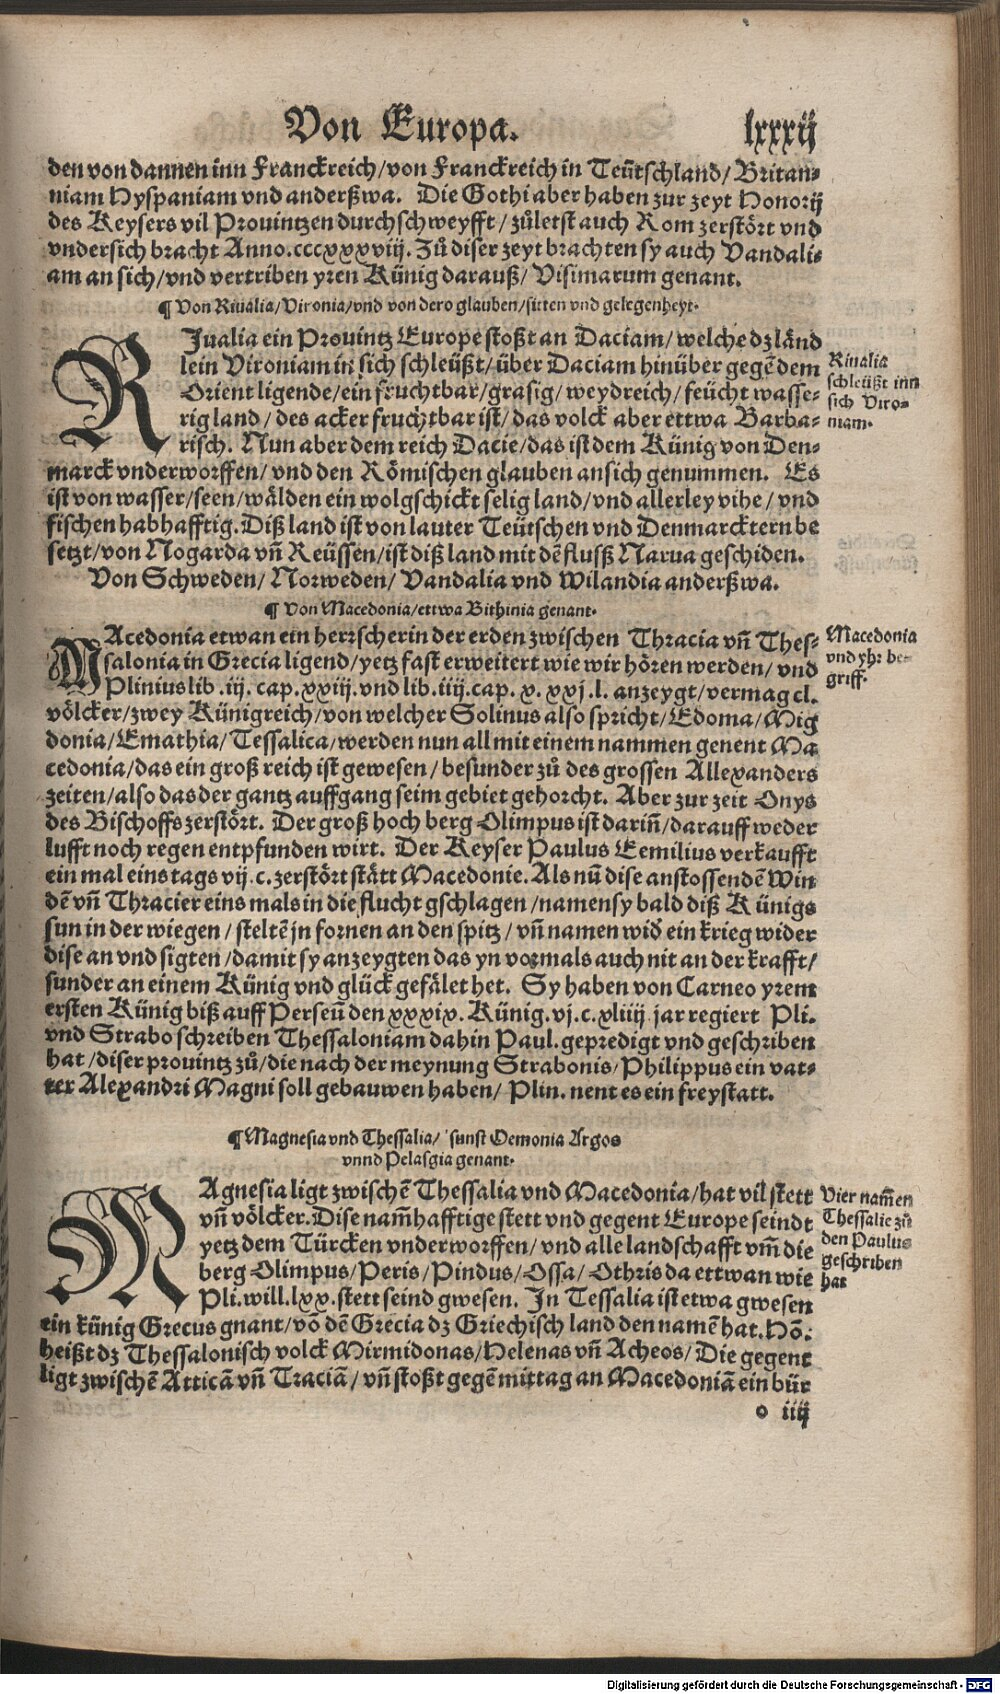 Von Europa. lxxxij
den von dannen inn Franckreich/von Franckreich in Teütschland/Britan⸗
niam Hyspaniam vnd anderßwa. Die Gothi aber haben zur zeyt Honorij
des Keysers vil Prouintzen durchschweyfft/zůletst auch Rom zerstört vnd
vndersich bracht Anno.cccxxxviij. Zů diser zeyt brachten sy auch Vandali⸗
am an sich/vnd vertriben yren Künig darauß/Visimarum genant.
¶ Von Riualia/Vironia/vnd von dero glauben/sitten vnd gelegenheyt.
RJualia ein Prouintz Europe stoßt an Daciam/welche dz länd
lein Vironiam in sich schleüßt/über Daciam hinüber gegē dem
Orient ligende/ein fruchtbar/grasig/weydreich/feücht wasse⸗
rig land/des acker fruchtbar ist/das volck aber ettwa Barba⸗
risch. Nun aber dem reich Dacie/das ist dem Künig von Den⸗
marck vnderworffen/vnd den Römischen glauben ansich genummen. Es
ist von wasser/seen/wälden ein wolgschickt selig land/vnd allerley vihe/vnd
fischen habhafftig. Diß land ist von lauter Teütschen vnd Denmarcktern be
setzt/von Nogarda vñ Reüssen/ist diß land mit dē flusß Narua geschiden.
Von Schweden/Norweden/Vandalia vnd Wilandia anderßwa.
Riualia
schleüßt inn
sich Viro⸗
niam.
¶ Von Macedonia/ettwa Bithinia genant.
MAcedonia etwan ein herrscherin der erden zwischen Thracia vñ Thes⸗
salonia in Grecia ligend/yetz fast erweitert wie wir hören werden/vnd
Plinius lib.iij. cap.xxiij.vnd lib.iiij.cap. x. xxj.l. anzeygt/vermag cl.
völcker/zwey Künigreich/von welcher Solinus also spricht/Edoma/Mig
donia/Emathia/Tessalica/werden nun all mit einem nammen genent Ma
cedonia/das ein groß reich ist gewesen/besunder zů des grossen Allexanders
zeiten/also das der gantz auffgang seim gebiet gehorcht. Aber zur zeit Onys
des Bischoffs zerstört. Der groß hoch berg Olimpus ist dariñ/darauff weder
lufft noch regen entpfunden wirt. Der Keyser Paulus Eemilius verkaufft
ein mal eins tags vij.c.zerstört stätt Macedonie. Als nū dise anstossendē Win
dē vñ Thracier eins mals in die flucht gschlagen/namen sy bald diß Künigs
sun in der wiegen/steltē jn fornen an den spitz/vñ namen wiď ein krieg wider
dise an vnd sigten/damit sy anzeygten das yn vormals auch nit an der krafft/
sunder an einem Künig vnd glück gefälet het. Sy haben von Carneo yrem
ersten Künig biß auff Perseū den xxxix. Künig.vj.c.xliiij.jar regiert Pli.
vnd Strabo schreiben Thessaloniam dahin Paul.gepredigt vnd geschriben
hat/diser prouintz zů/die nach der meynung Strabonis/Philippus ein vat⸗
ter Alexandri Magni soll gebauwen haben/Plin.nent es ein freystatt.
Macedonia
vnd yhr be⸗
griff.
¶ Magnesia vnd Thessalia/sunst Oemonia Argos
vnnd Pelasgia genant.
MAgnesia ligt zwischē Thessalia vnd Macedonia/hat vil stett
vñ völcker.Dise nam̄hafftige stett vnd gegent Europe seindt
yetz dem Türcken vnderworffen/vnd alle landschafft vm̄ die
berg Olimpus/Peris/Pindus/Ossa/Othris da ettwan wie
Pli.will.lxx.stett seind gwesen. In Tessalia ist etwa gwesen
ein künig Grecus gnant/vō dē Grecia dz Griechisch land den namē hat.Hō.
heißt dz Thessalonisch volck Mirmidonas/Helenas vñ Acheos/Die gegent
ligt zwischē Atticā vñ Traciā/vñ stoßt gegē mittag an Macedoniā ein bür
Vier nam̄en
Thessalie zů
den Paulus
geschriben
hat
o iiij
Digitalisierung gefördert durch die Deutsche Forschungsgemeinschaft - DFG